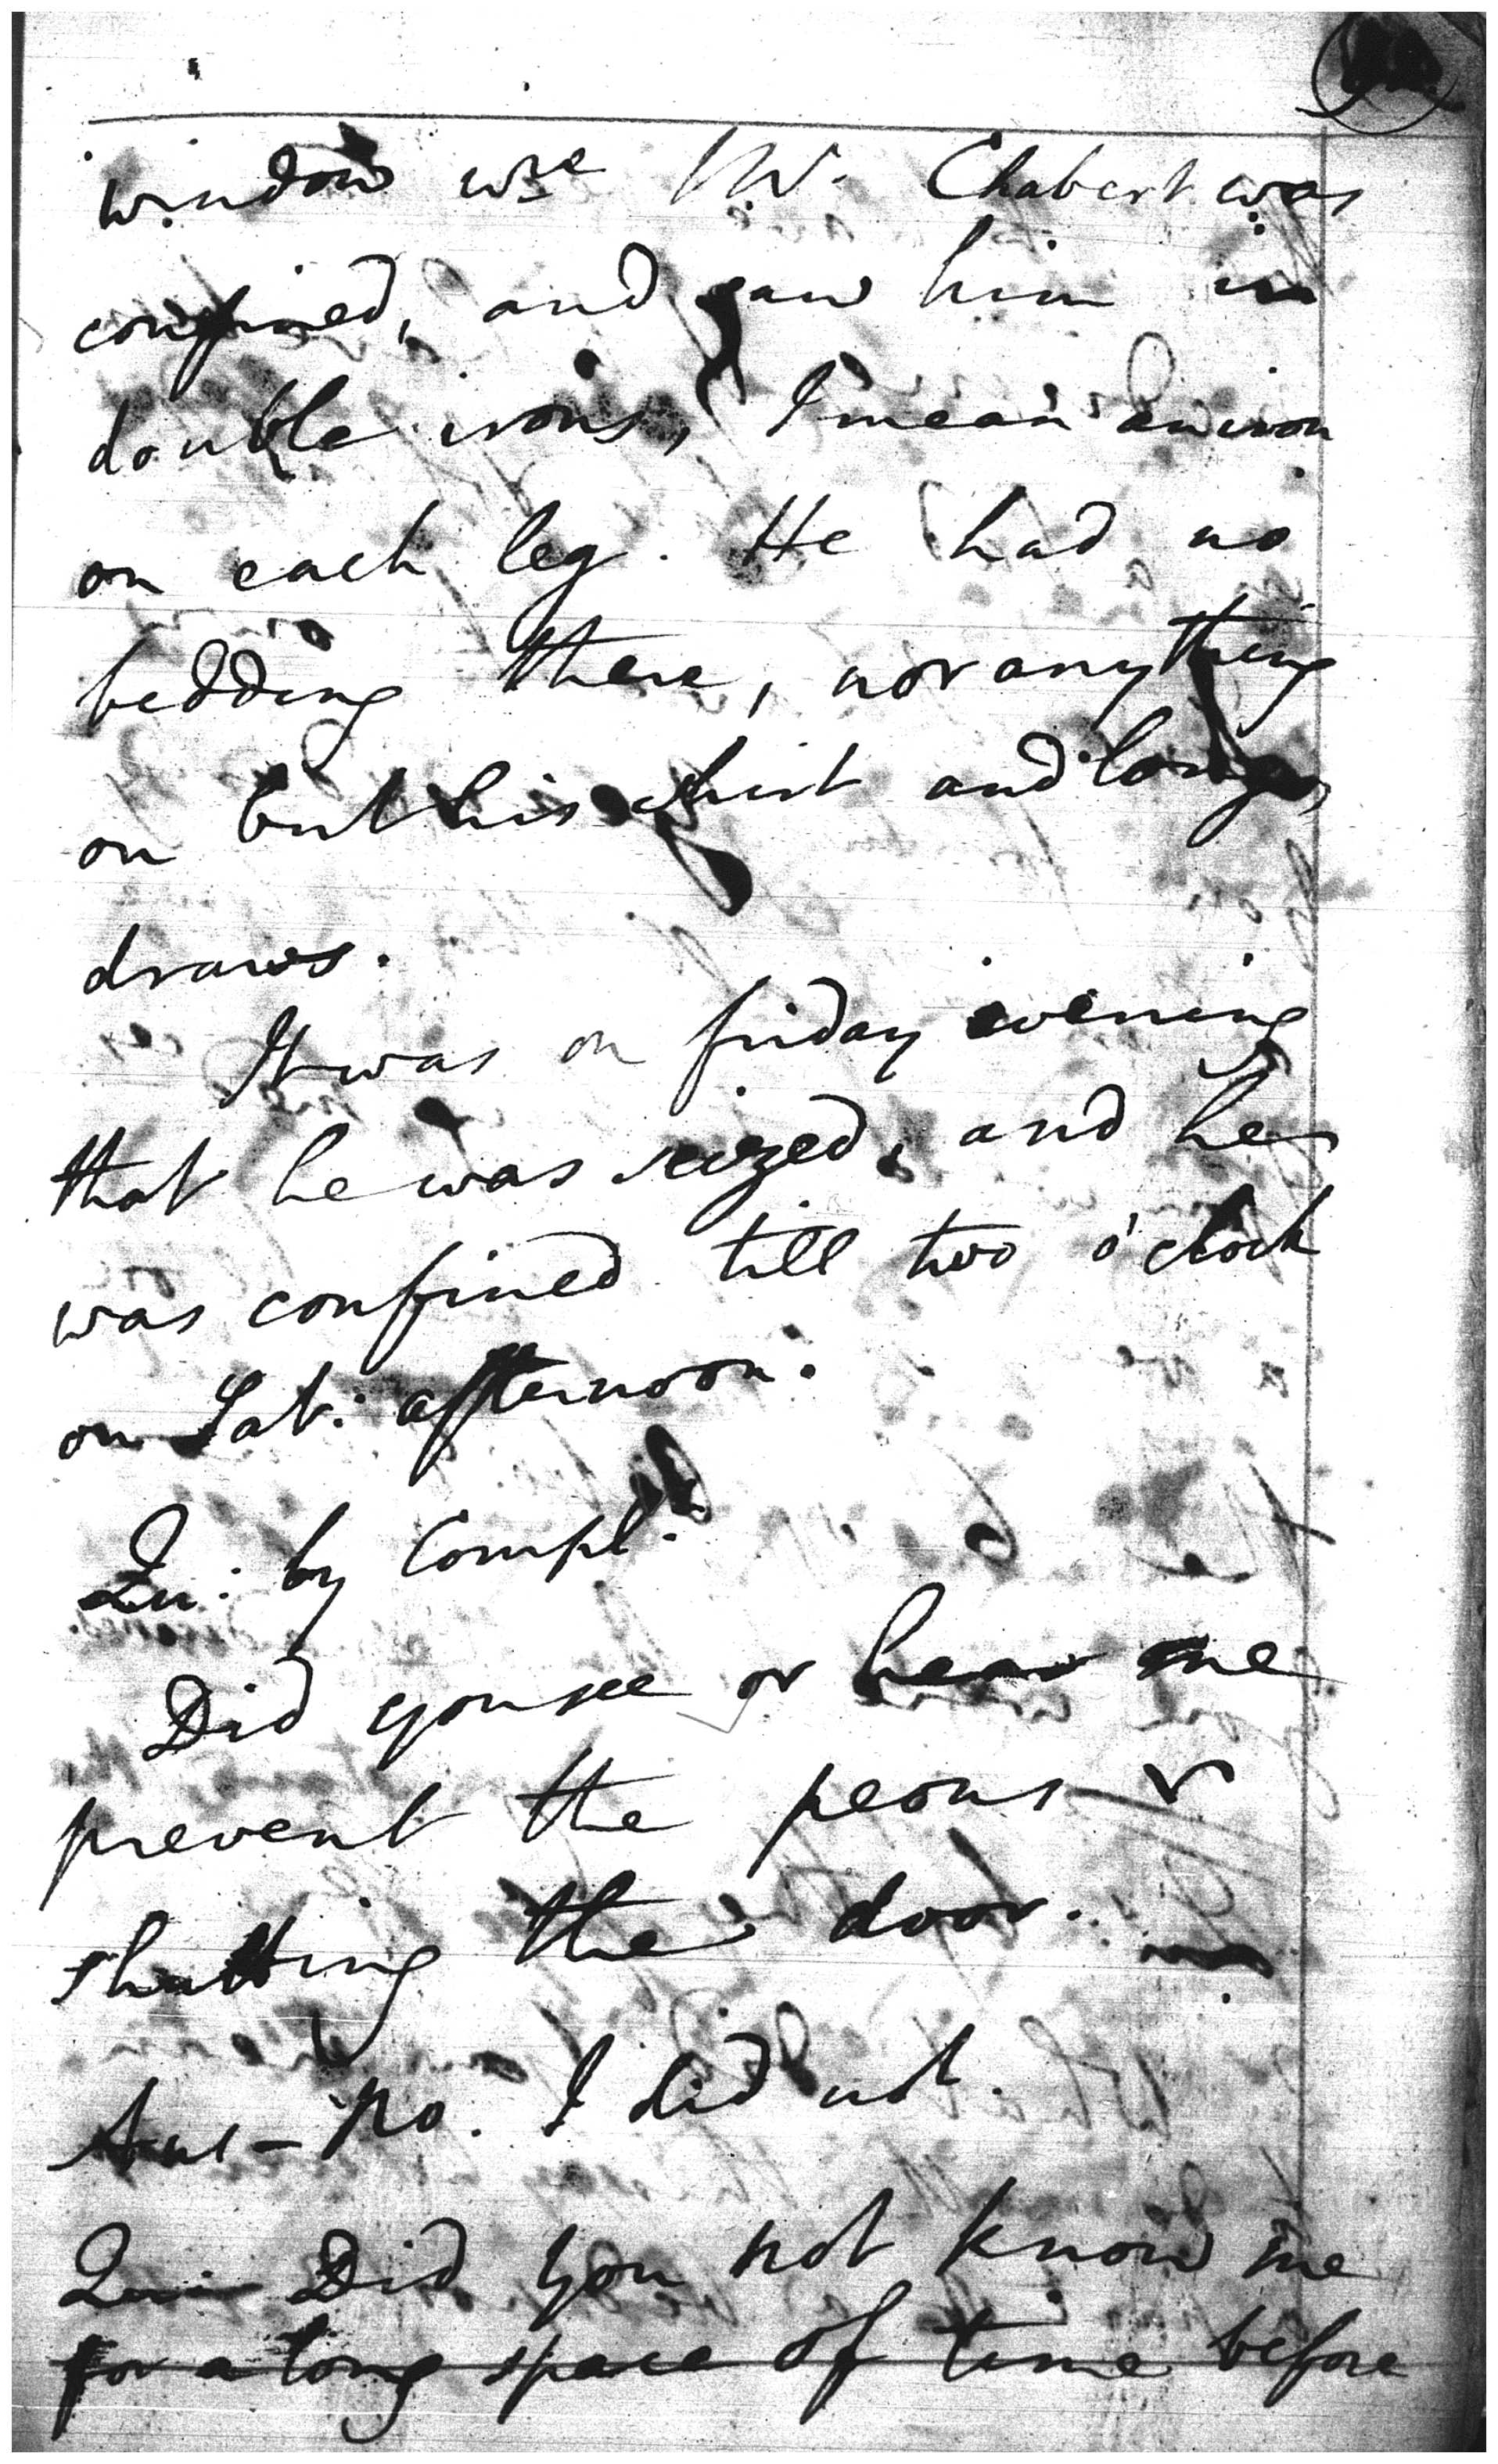 window wre Mr. Chabert was
confined, and saw him in
double irons, I mean an iron
on each leg. He had no
bedding there, nor anything
on but his shirt and long
draws.
It was on friday evening
that he was seized, and he
was confined till two o'clock
on Sat: afternoon.
Qu: by Compl.
Did you see or hear me
prevent the peons
shutting the door.
Ans - No. I did not.
Qu: Did you not know me
for a long space of time before